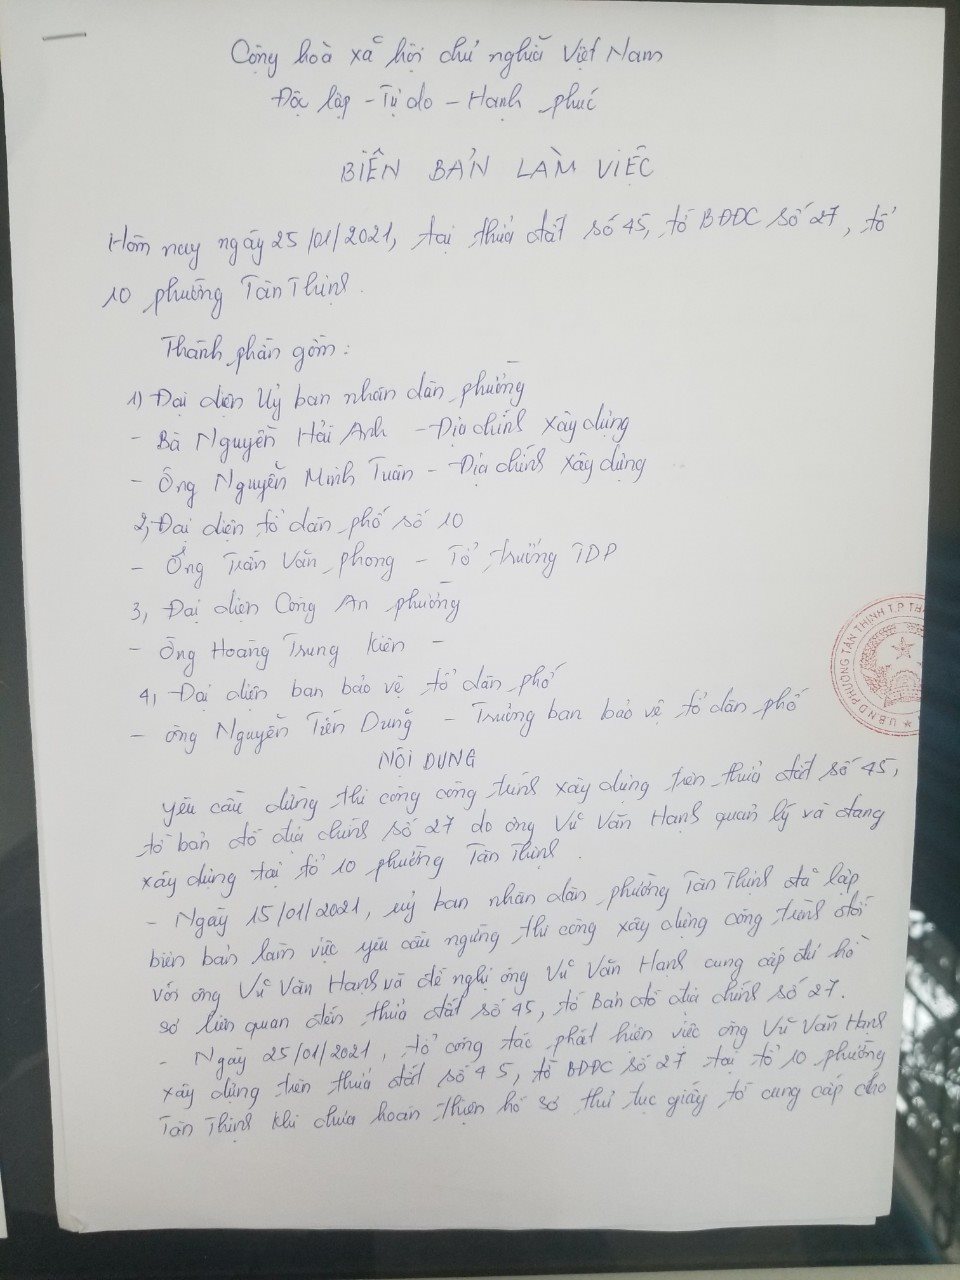 Cộng hoà xã hội chủ nghĩa Việt Nam
Độc lập - Tự do - Hạnh phúc
BIÊN BẢN LÀM VIỆC
Hôm nay ngày 25/01/2021, tại thửa đất số 45, tờ BĐĐC số 27, tổ
10 phường Tân Thịnh.
Thành phần gồm:
1) Đại diện Uỷ ban nhân dân phường
- Bà Nguyễn Hải Anh - Địa chính xây dựng
- Ông Nguyễn Minh Tuân - Địa chính xây dựng
2, Đại diện tổ dân phố số 10
- Ông Trần Văn Phong - Tổ trưởng TDP
3, Đại diện Công An phường
- Ông Hoàng Trung Kiên -
4, Đại diện ban bảo vệ tổ dân phố
- ông Nguyễn Tiến Dũng - Trưởng ban bảo vệ tổ dân phố
NỘI DUNG
Yêu cầu dừng thi công công trình xây dựng trên thửa đất số 45,
tờ bản đồ địa chính số 27 do ông Vũ Văn Hanh quản lý và đang
xây dựng tại tổ 10 phường Tân Thịnh.
- Ngày 15/01/2021, uỷ ban nhân dân phường Tân Thịnh đã lập
biên bản làm việc yêu cầu ngừng thi công xây dựng công trình đối
với ông Vũ Văn Hanh và đề nghị ông Vũ Văn Hanh cung cấp đủ hồ
sơ liên quan đến thửa đất số 45, tờ Bản đồ địa chính số 27.
- Ngày 25/01/2021, tổ công tác phát hiện việc ông Vũ Văn Hanh
xây dựng trên thửa đất số 45, tờ BĐĐC số 27 tại tổ 10 phường
Tân Thịnh khi chưa hoàn thiện hồ sơ thủ tục giấy tờ cung cấp cho
U.B.N.D PHƯỜNG TÂN THỊNH T.P TH